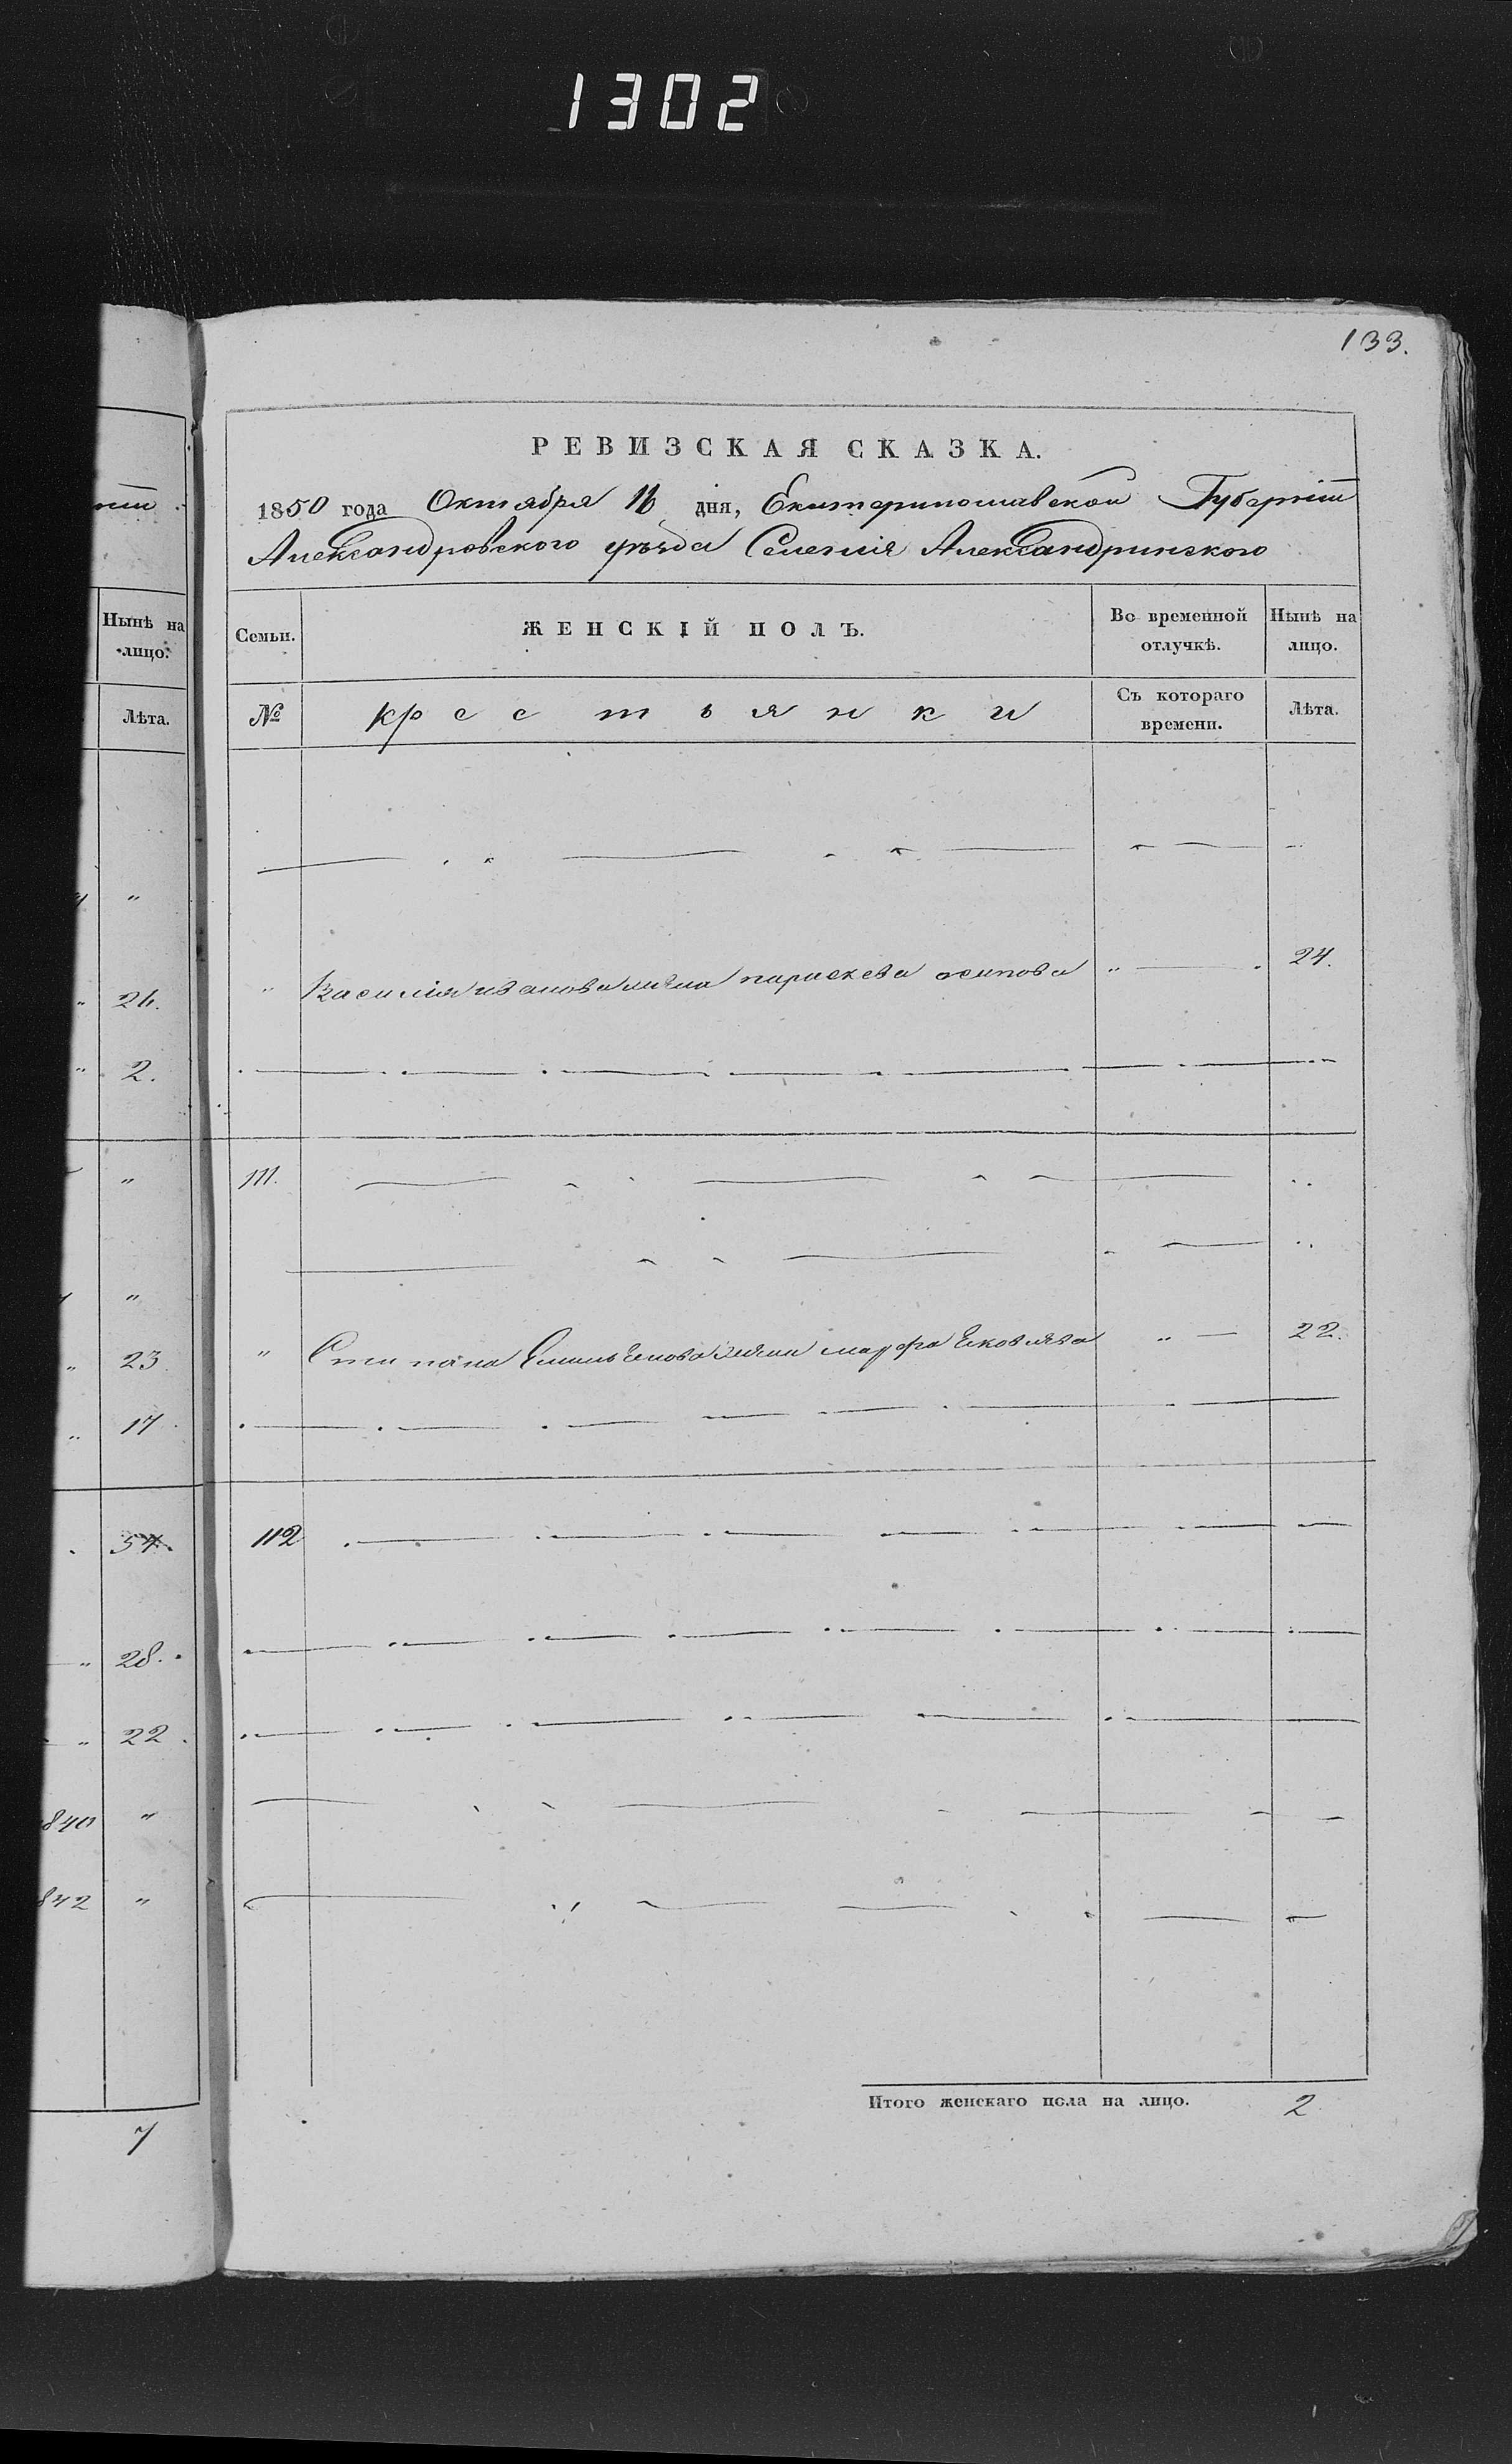 1302
133.
РЕВИЗСКАЯ СКАЗКА.
1850 года Октября 16 дня, Екатеринославской Губерніи
Александровского уѣзда Селенія Александринского
Семьи.
ЖЕНСКІЙ ПОЛЪ.
Во временной отлучкѣ.
Нынѣ на лицо.
№
крестьянки
Съ котораго времени.
Лѣта.
" Василия иванова жена параскева осипова " — 24.
111.
" Степана Емильянова жена марфа Яковлева " — 22.
112
Итого женскаго пола на лицо. 2
Нынѣ на
лицо.
Лѣта.
"
" 26.
" 2.
"
"
" 23
" 17
54.
" 28.
" 22.
840 "
842 "
7